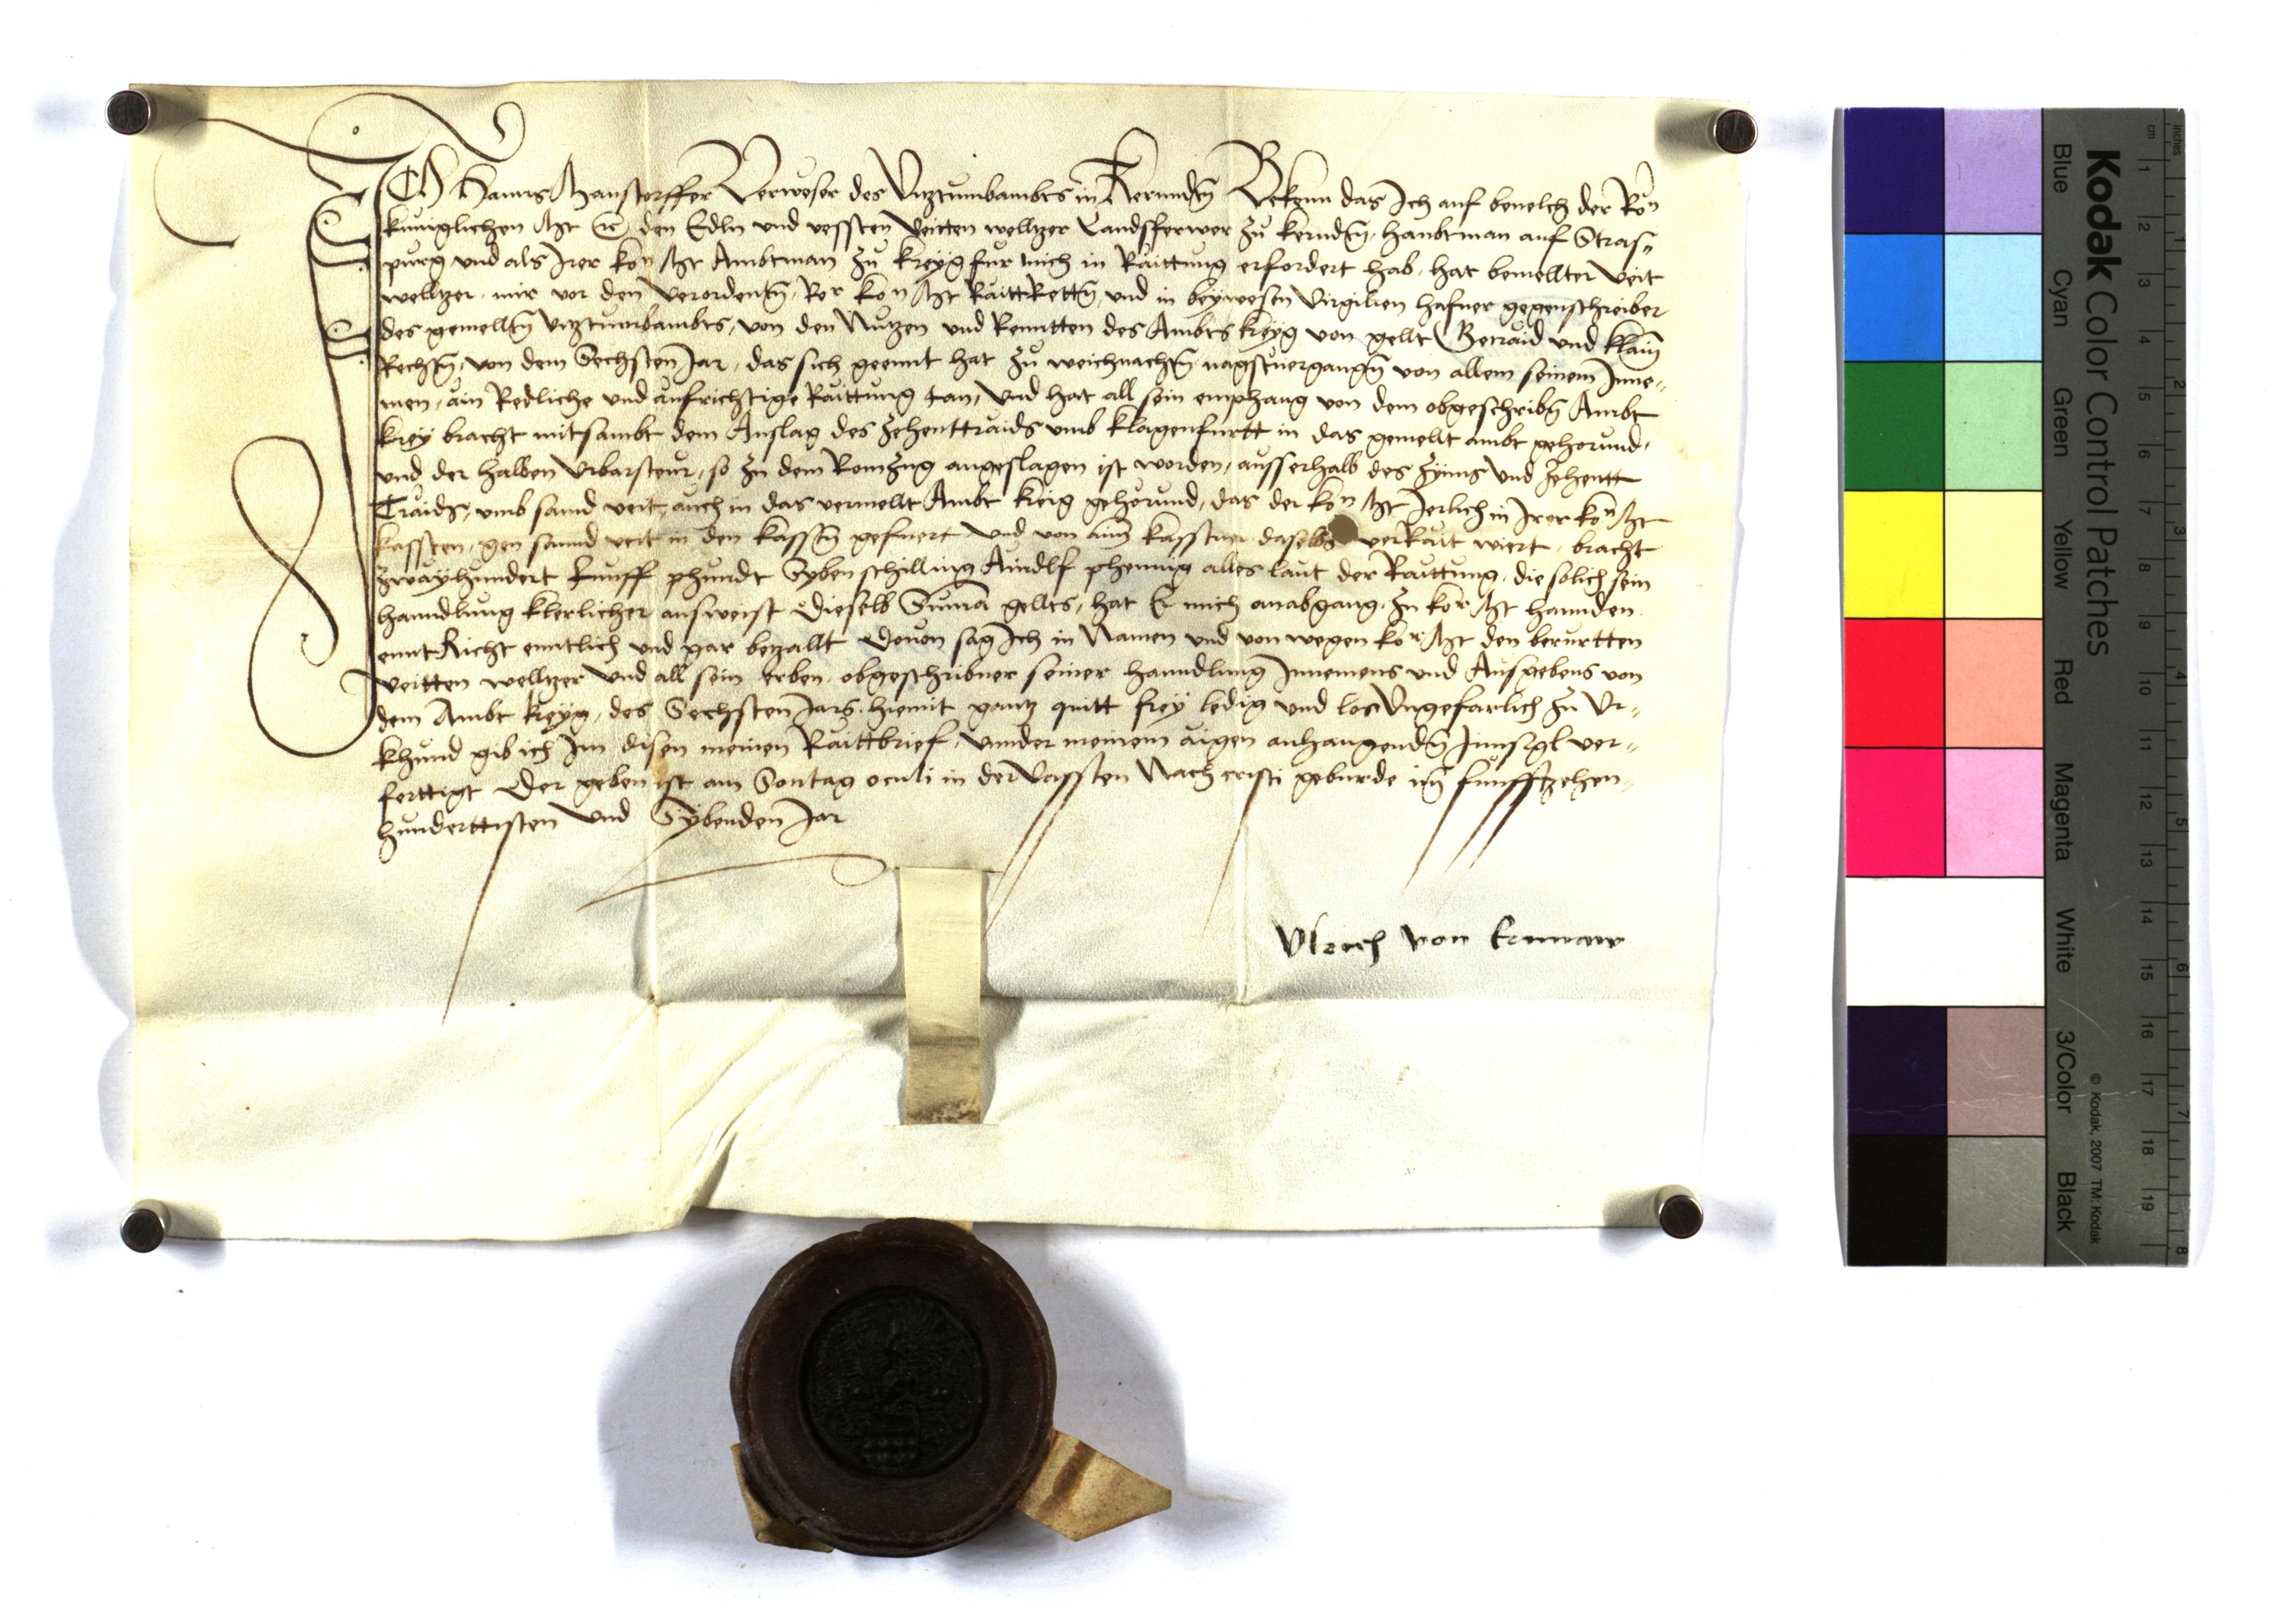 Ich Hanns Manstorffer Verweser des Vitztumbambts in Kernndn̄ Bekenn das Ich auf beuelch der Ro͞n
kuniglichen Mt ꝛc den Edln vnd vessten Veitten welltzer Landsferweser zu kerndn̄, haubtman auf Stras„
purg vnd als Irer kon Mt Ambtman zu kreyg fur mich in Raittung erfordert hab, hat bemellter veit
welltzer, mir vor den verordentn̄, Ror kon Mt RaittRettn̄, vnd in beywesen Virgilien hafner gegenschreiber
des gemelltn̄ vitztumbambts, von den Nutzen vnd Renntten des Ambts kreyg von gellt Getraid vnd klain
Rechtn̄, von dem Sechsten Jar, das sich geennt hat zu weichnachtn̄ nagstuergangn̄ von allem seinem Inne„
men, ain Redliche vnd aufrichtige Raittung tan, Vnd hat all sein emphang von dem obgeschribn̄ Ambt
krey bracht mitsambt dem Anslag des zehenttraids vmb klagenfurtt in das gemellt ambt gehorund,
vnd der halben vrbarsteur, so zu dem Romzug angeslagen ist worden, ausserhalb des zynns vnd zehentt
Traids, vmb sannd veit, auch in das vermellt Ambt kreig gehörund, das der kon Mt Jerlich in Irer kon Mt
kassten, gen sannd veit in den kasstn̄ gefuert vnd von aim kasstner daselbs verRait wiert, bracht
zwayhundert Funff phundt Syben schilling Aindlf phennig alles laut der Raittung, die solich sein
hanndlung klerlicher ausweist Dieselb Suma gellts, hat Er mich anabgang, zu kor Mt hannden
enntRicht enntlich vnd gar betzallt Douon sag Ich in Namen vnd von wegen kor Mt den berurtten
veitten welltzer vnd all sein erben, obgeschribner seiner hanndlung Innemens vnd Ausgebens von
dem Ambt kreyg, des Sechsten Jars, hiemit gantz quitt frey ledig vnd los Vngefarlich zu Vr„
khund gib ich Im disen meinen Raittbrief, vnnder meinem aigen anhangendn̄ Innsigl ver„
ferttigt Der geben ist am Sontag oculi in der Vassten Nach cristi geburde im funfftzehen„
hunderttisten vnd Sybenden Jar
Vlrich von Ernnaw
Kodak Color Control Patches
Blue Cyan Green Yellow Red Magenta White 3/Color Black
© Kodak, 2007 TM: Kodak
cm 1 2 3 4 5 6 7 8 9 10 11 12 13 14 15 16 17 18 19
inches 1 2 3 4 5 6 7 8